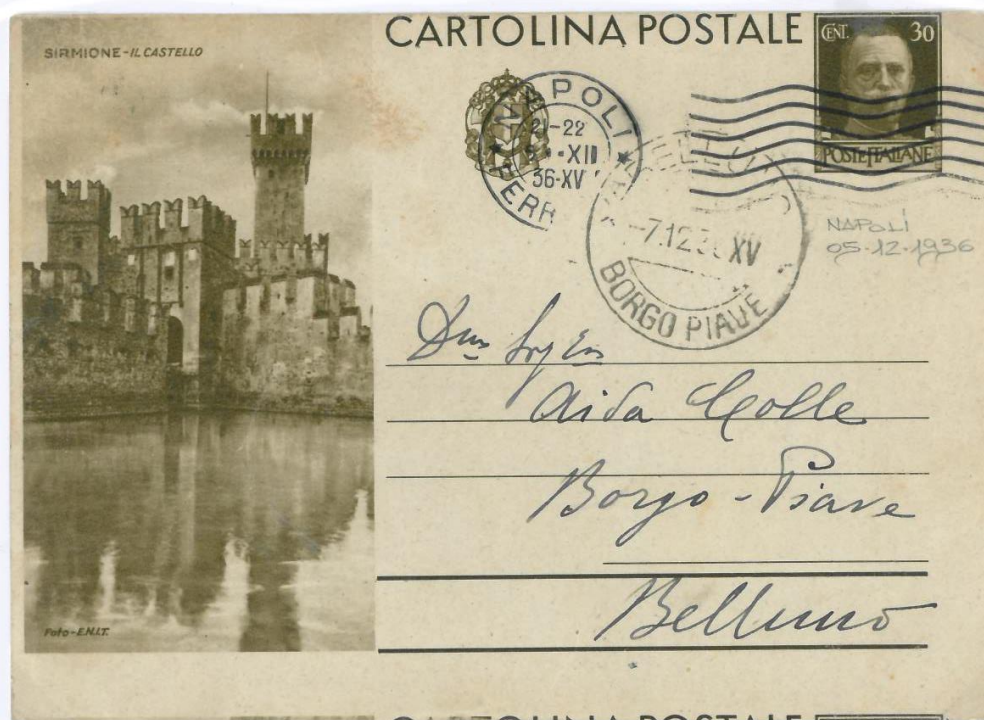 SIRMIONE - IL CASTELLO
Foto - E.N.I.T.
CARTOLINA POSTALE
CENT. 30
POSTE ITALIANE
NAPOLI
21-22
XII
36-XV
FERR
BELLUNO
-7.12.3 XV
BORGO PIAVE
NAPOLI
05-12-1936
Aida Colle
Borgo-Piave
Belluno
CARTOLINA POSTALE